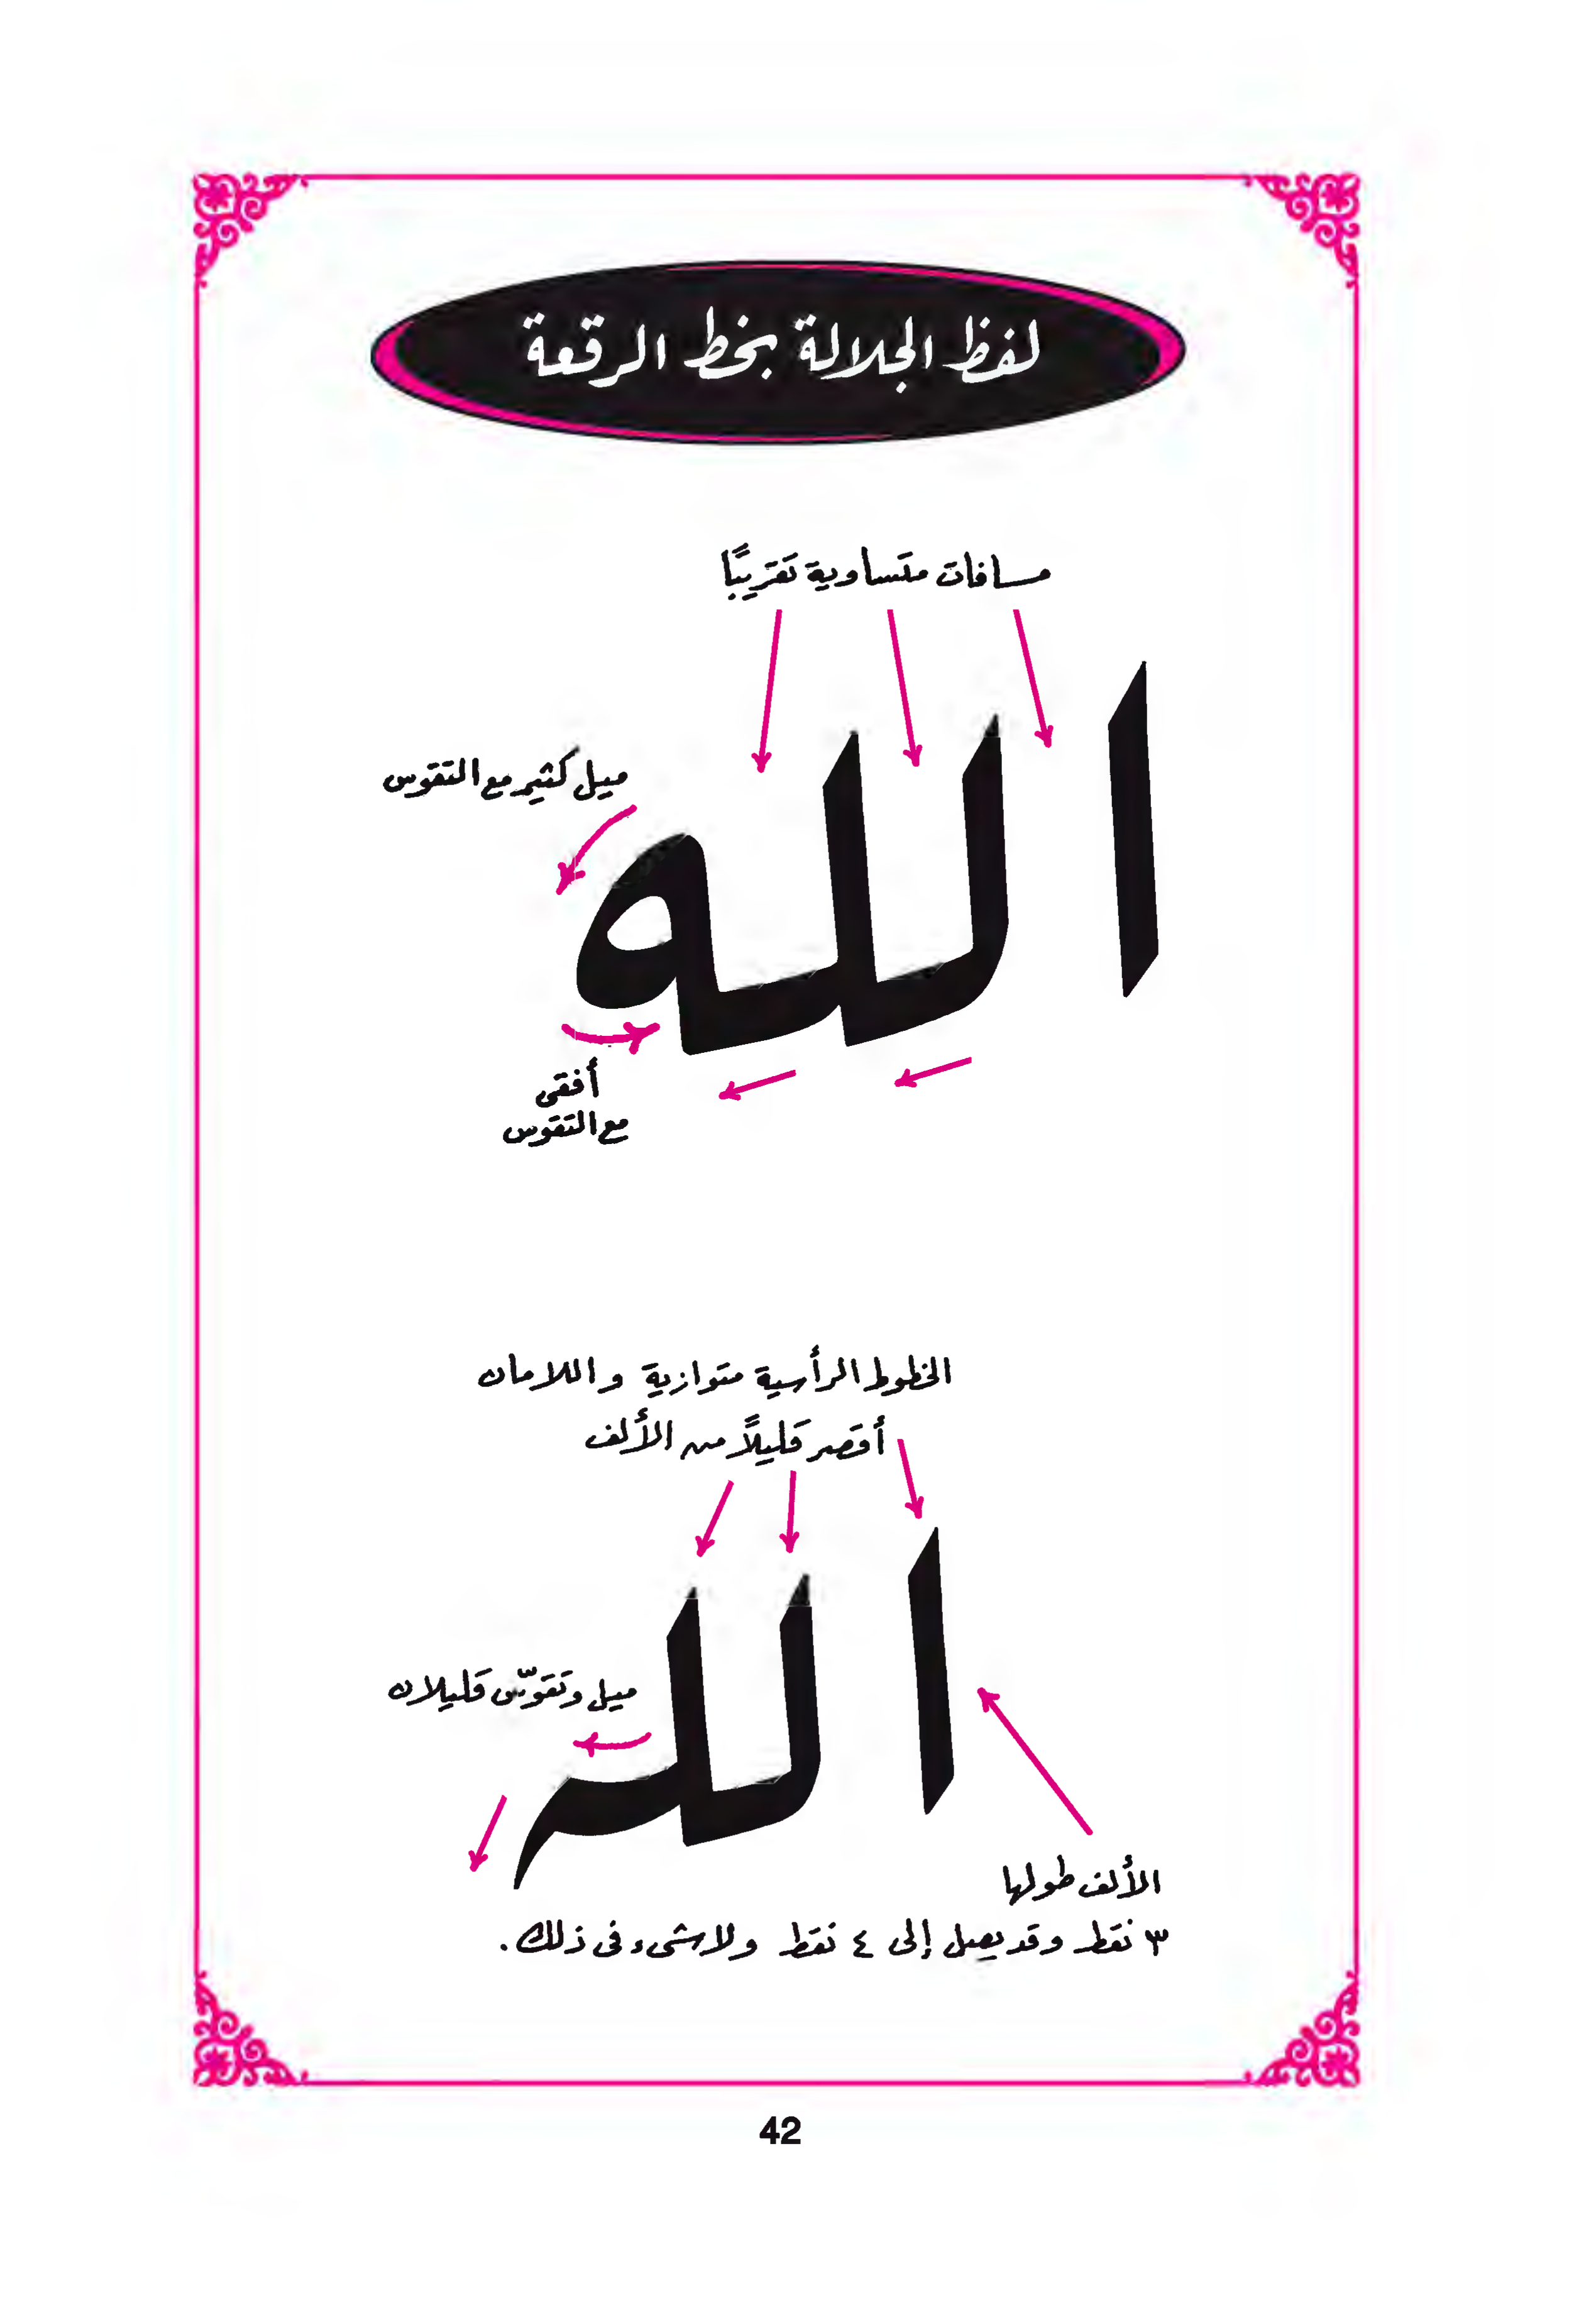 لفظ الجلالة بخط الرقعة
مسافات متساوية تقريبًا
ميل كثير مع التقوس
الله
أفقى
مع التقوس
الخطوط الرأسية متوازية واللامان
أقصر قليلاً من الألف
الله
ميل وتقوّس قليلان
الألف طولها
٣ نقط وقد يصل إلى ٤ نقط ولا شىء فى ذلك.
42